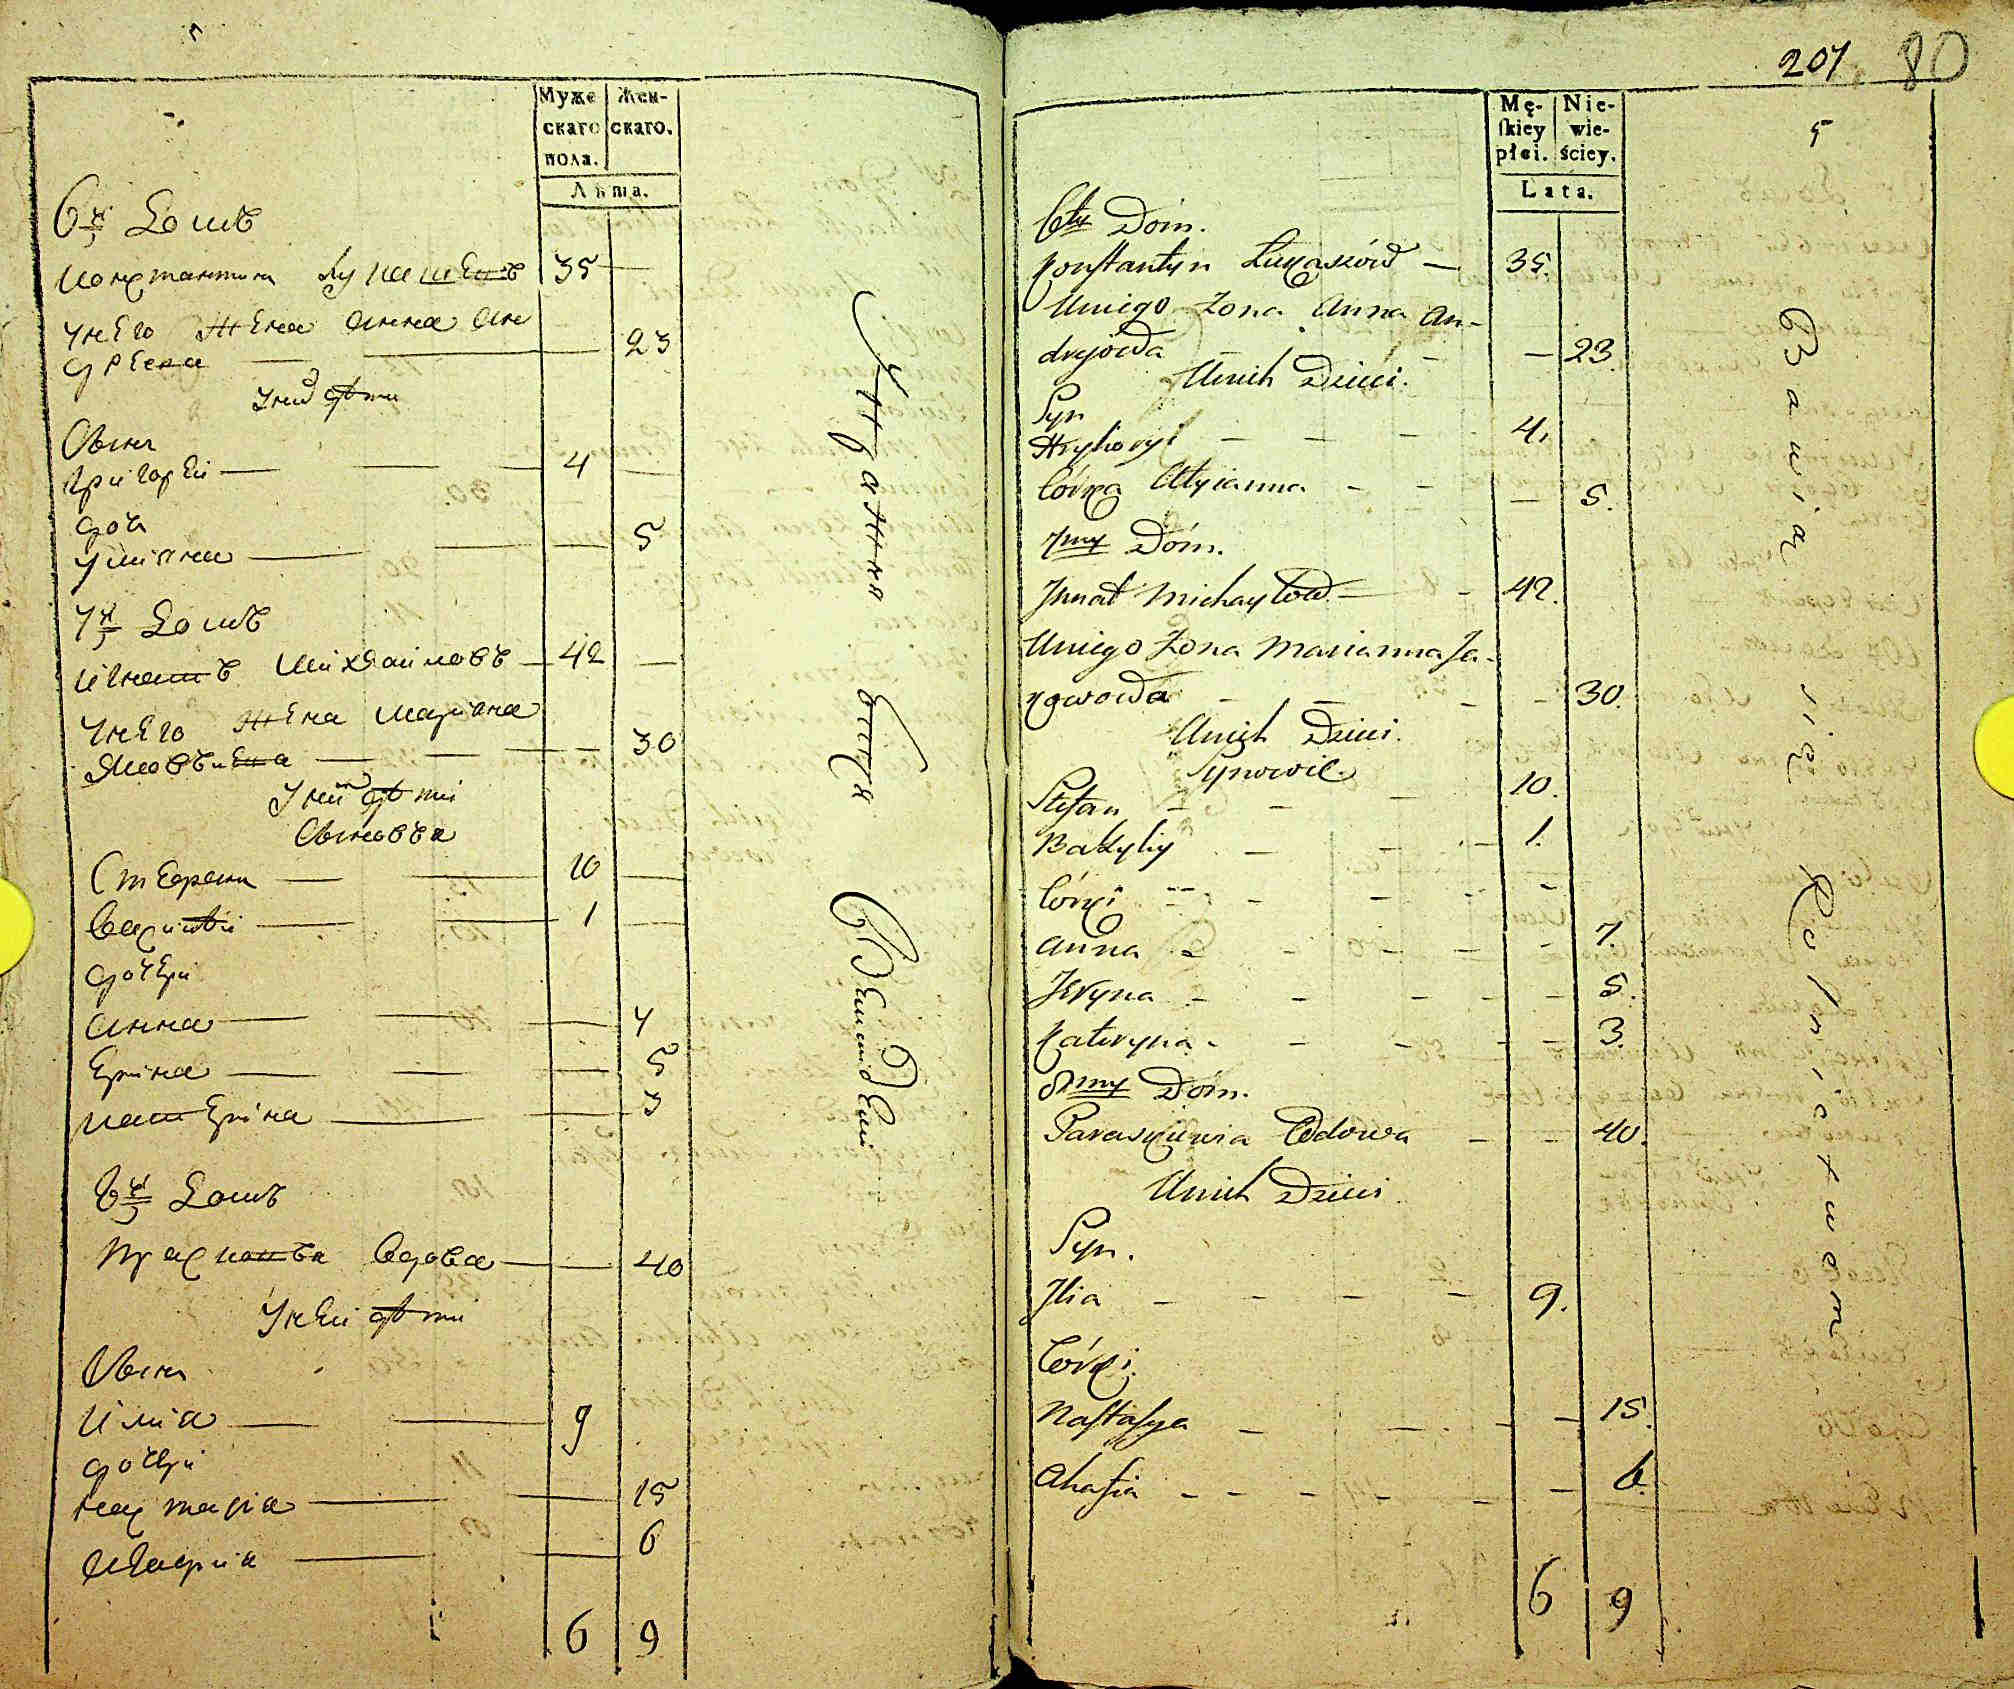 Муже
скаго
пола.
Жен-
скаго.
Лѣта.
6й Домъ
Константин Лукашевъ 35
унего Жена Анна Ан
дреева 23
Уних дѣти
Сынъ
Григорей 4
дочь
Улияна 5
7й Домъ
Игнатъ Михайловъ 42
Унего Жена Марiана
Яковлева 30
Уних дѣти
Сыновья
Стефанъ 10
Василiй 1
дочери
Анна 7
Ерина 5
Катерина 3
8й Домъ
Праско́вья Вдова 40
Уней дѣти
Сынъ
Илiа 9
дочери
Настасiа 15
Агафiа 6
6 9
207 80
Mę-
ſkiey
płci.
Nie-
wie-
ściey.
Lata.
5
6ty Dóm.
Konstantyn Łukaszów — 35.
Uniego Żona Anna An-
dryiowa — 23
Unich Dzieci.
Syn
Hryhoryi — 4.
Córka Ulyianna — 5.
7my Dóm.
Jhnat Michayłow — 42.
Uniego Żona Marianna Ja-
kowowa — 30.
Unich Dzieci.
Synowie.
Stefan — 10.
Bazyliy — 1.
Córki
Anna — 7.
Jeryna — 5.
Kateryna — 3.
8my Dóm.
Paraskiewia Wdowa — 40.
Unich Dzieci
Syn.
Jlia — 9.
Córki
Nastasya — 15.
Ahafia — 6.
6 9
Bawią się Rolnictwem